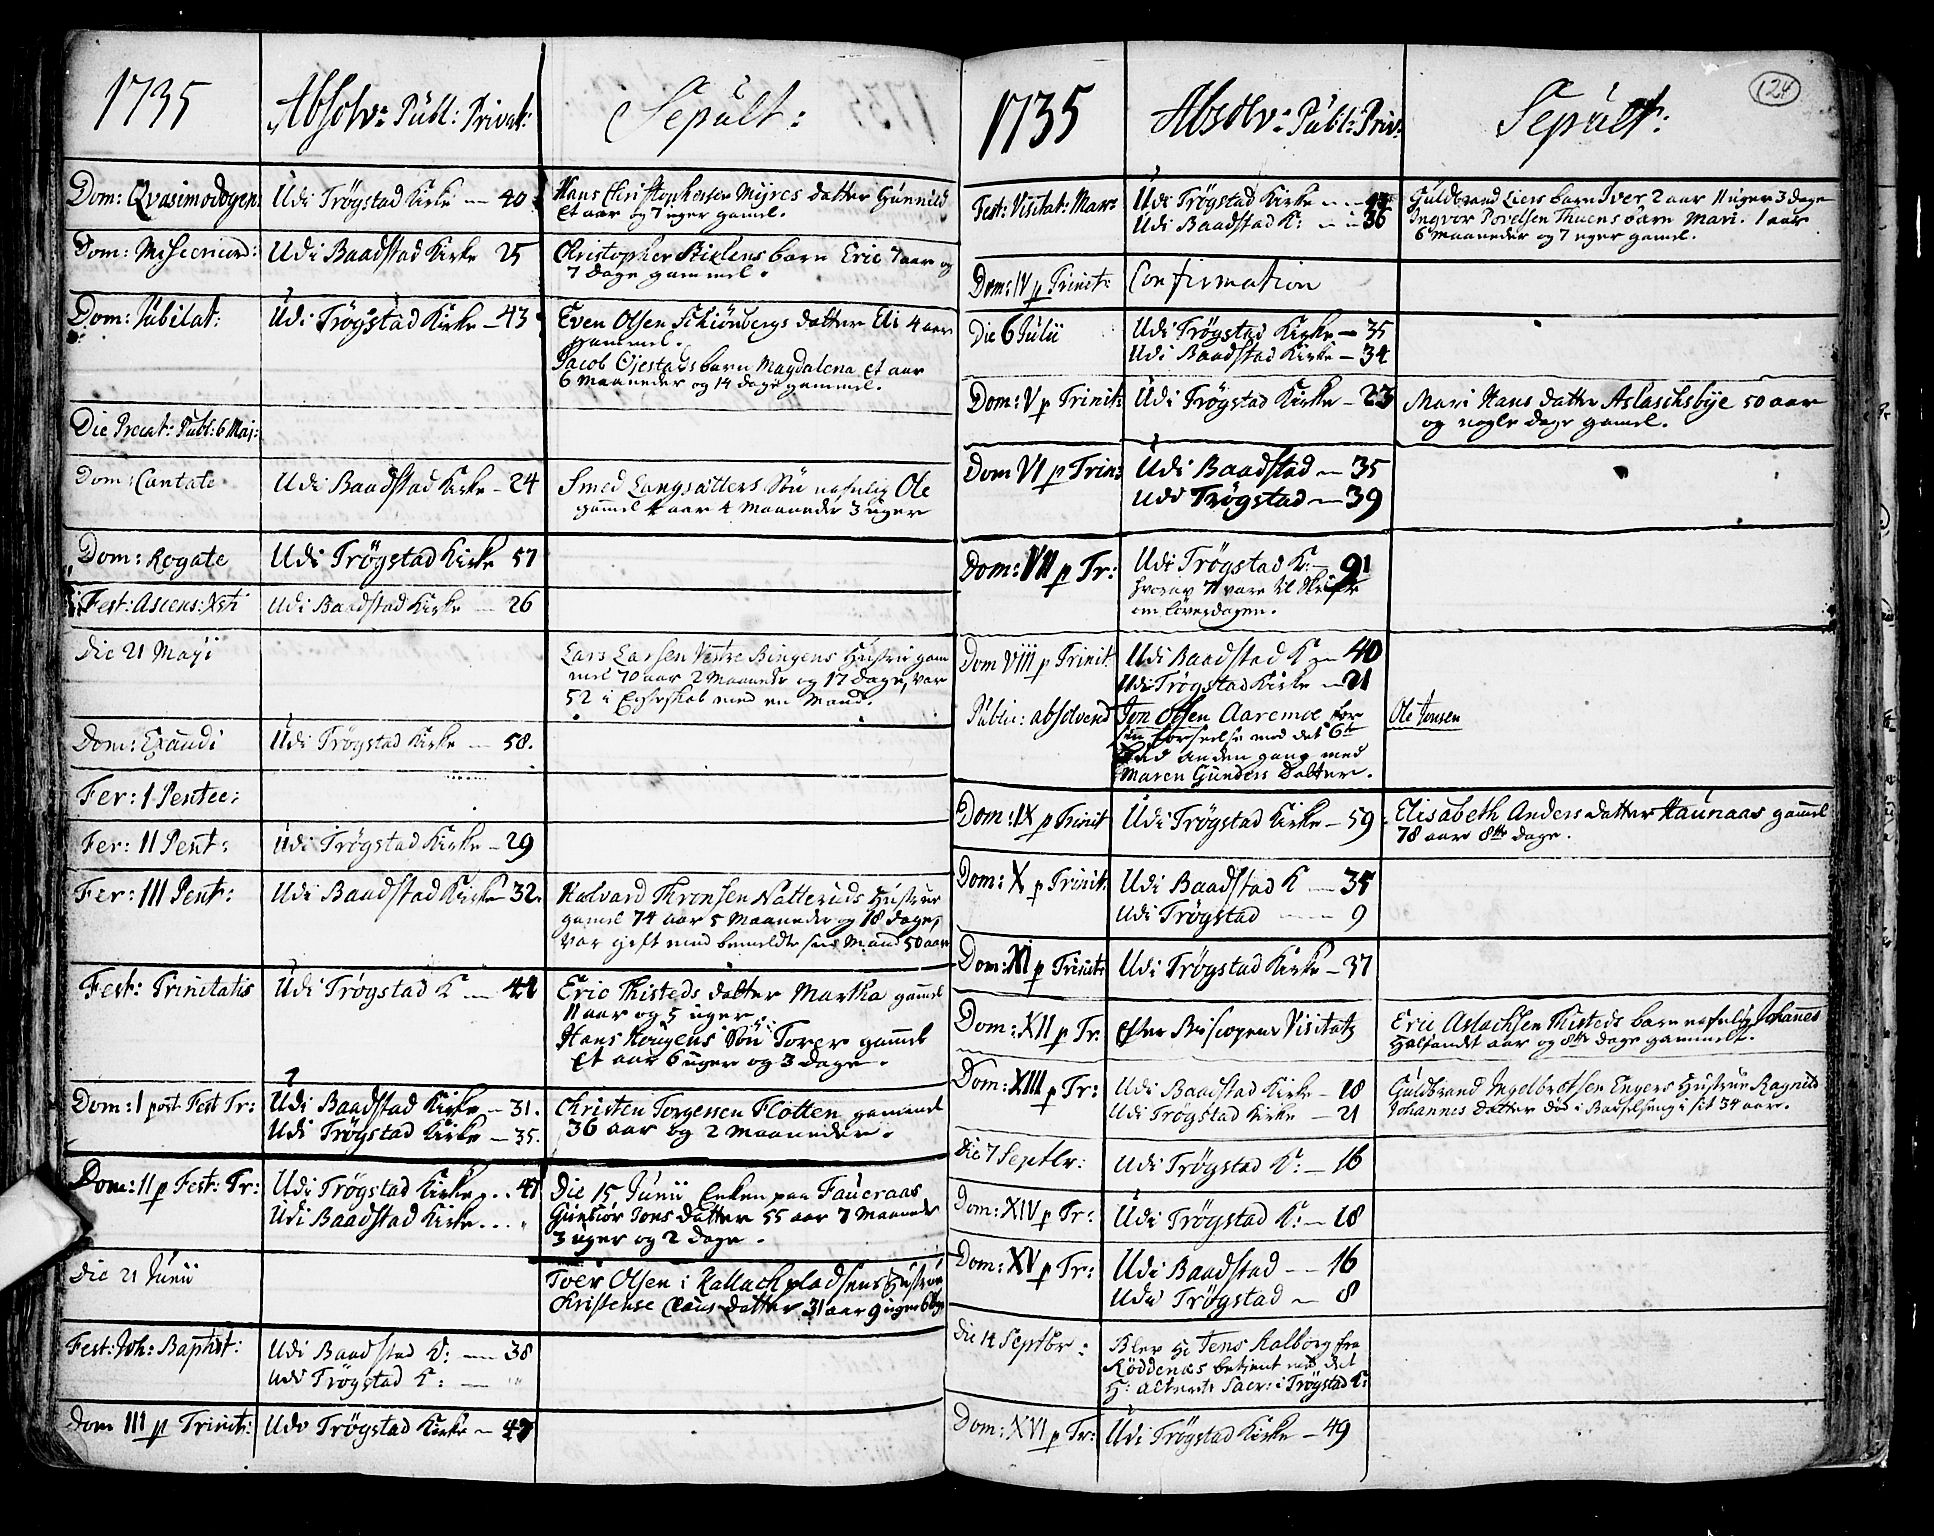 1735
Absolv: Publ: Privat:
Sepult:
Dom: Qvasimodogen:
Udi Trögstad Kirke — 40
Hans Christophersen Mÿres datter Gunnild
Et aar og 7 uger gamel.
Dom: Misericord:
Udi Baadstad Kirke 25
Christopher barn Eric 7 aar og
7 dage gammel.
Dom: Jubilat:
Udi Trögstad Kirke — 43
Even Olsen Schiönbergs datter Eli 4 aar
gammel.
Jacob barn Magdalena et aar
6 Maaneder og 14 dage gammel.
Die Precat: Publ: 6 Maj:
Dom: Cantate
Udi Baadstad Kirke — 24
Smed Langsætters Sön nafnlig Ole
gamel 4 aar 4 Maaneder 3 uger
Dom: Rogate
Udi Trögstad Kirke 57
Fest: Ascens: Xsti
Udi Baadstad Kirke — 26
Die 21 Maÿi
Lars Larsen Vestre Bingens Hustru gam
mel 70 aar 2 Maaneder og 17 dage, var
52 i Egteskab med en Mand.
Dom: Exaudi
Udi Trögstad Kirke — 58.
Fer: I Pentec:
Fer: II Pent:
Udi Trögstad Kirke — 29
Fer: III Pent:
Udi Baadstad Kirke 32.
Halvard Thronsen Natteruds Hustrue
gamel 74 aar 5 Maaneder og 18 dage,
var gift med bemeldte sin Mand 50 aar
Fest: Trinitatis
Udi Trögstad K — 44
Eric Thisteds datter Martha gamel
11 aar og 5 uger.
Hans Haugens Sön Torer gammel
Et aar 6 uger og 3 dage.
Dom: I post Fest Tr:
Udi Baadstad Kirke — 31.
Udi Trögstad Kirke — 35.
Christen Torgersen Flotten gammel
36 aar og 2 Maaneder.
Dom: II p Fest: Tr:
Udi Trögstad Kirke . . 41
Udi Baadstad Kirke . . . "
Die 15 Junii Enken paa Faueraas
Gunbiör Jons datter 55 aar 7 Maaneder
3 uger og 2 dage.
Die 21 Junii
Iver Olsen i Kallachpladsens Hustrue
Christense Claus datter 31 aar 9 uger 6 dage
Fest: Joh: Baptist:
Udi Baadstad K: — 38
Udi Trögstad K: — "
Dom III p Trinit:
Udi Trögstad Kirke — 47
1735
Absolv: Publ: Priv:
Sepult:
124
Fest: Visitat: Mar:
Udi Trögstad Kirke
Udi Baadstad K: — 36
Guldbrand Liers barn Iver 2 aar 11 uger 3 dage
Ingvor Povelsen Thuens barn Mari. 1 aar
6 maaneder og 7 uger gamel.
Dom: IV p Trinit:
Confirmation
Die 6 Julii
Udi Trögstad Kirke — 35
Udi Baadstad Kirke — 34
Dom: V p Trinit:
Udi Trögstad Kirke — 23
Mari Hans datter Aslachsbÿe 50 aar
og nogle dage gamel.
Dom VI p Trin:
Udi Baadstad — 35
Udi Trögstad — 39
Dom: VII p Tr:
Udi Trögstad K: — 91
hvoraf 7 vare til Skrifte
om Löverdagen.
Dom VIII p Trinit
Udi Baadstad K — 40
Udi Trögstad Kirke — 21
Public: absolvered
Jon Olsen Aaremoe for
sin forseelse mod det 6te
Bud anden gang med
Maren Gunders Datter.
Ole Jonsen
Dom: IX p Trinit
Udi Trögstad Kirke — 59
Elisabeth Anders datter Haunaas gamel
78 aar 8te dage.
Dom: X p Trinit:
Udi Baadstad K — 35
Udi Trögstad — 9
Dom: XI p Trinit:
Udi Trögstad Kirke — 37
Dom: XII p Tr:
Efter Biscopens Visitatz
Eric Aslachsen Thisteds barn nafnlig Johannes
Halfandet aar og 8te dage gammelt.
Dom: XIII p Tr:
Udi Baadstad Kirke — 18
Udi Trögstad Kirke — 21
Guldbrand Ingelbretsen Engers Hustrue Ragnild
Johannes datter död i Barselseng i sit 34 aar.
Die 7 Septbr:
Udi Trögstad K: — 16
Dom: XIV p Tr:
Udi Trögstad K: — 18
Dom: XV p Tr:
Udi Baadstad — 16
Udi Trögstad — 8
Die 14 Septbr:
Blev Hr Jens Aalborg fra
Röddenæs betient med det
H: Alterets Sacr: i Trögstad K:
Dom: XVI p Tr:
Udi Trögstad Kirke — 49